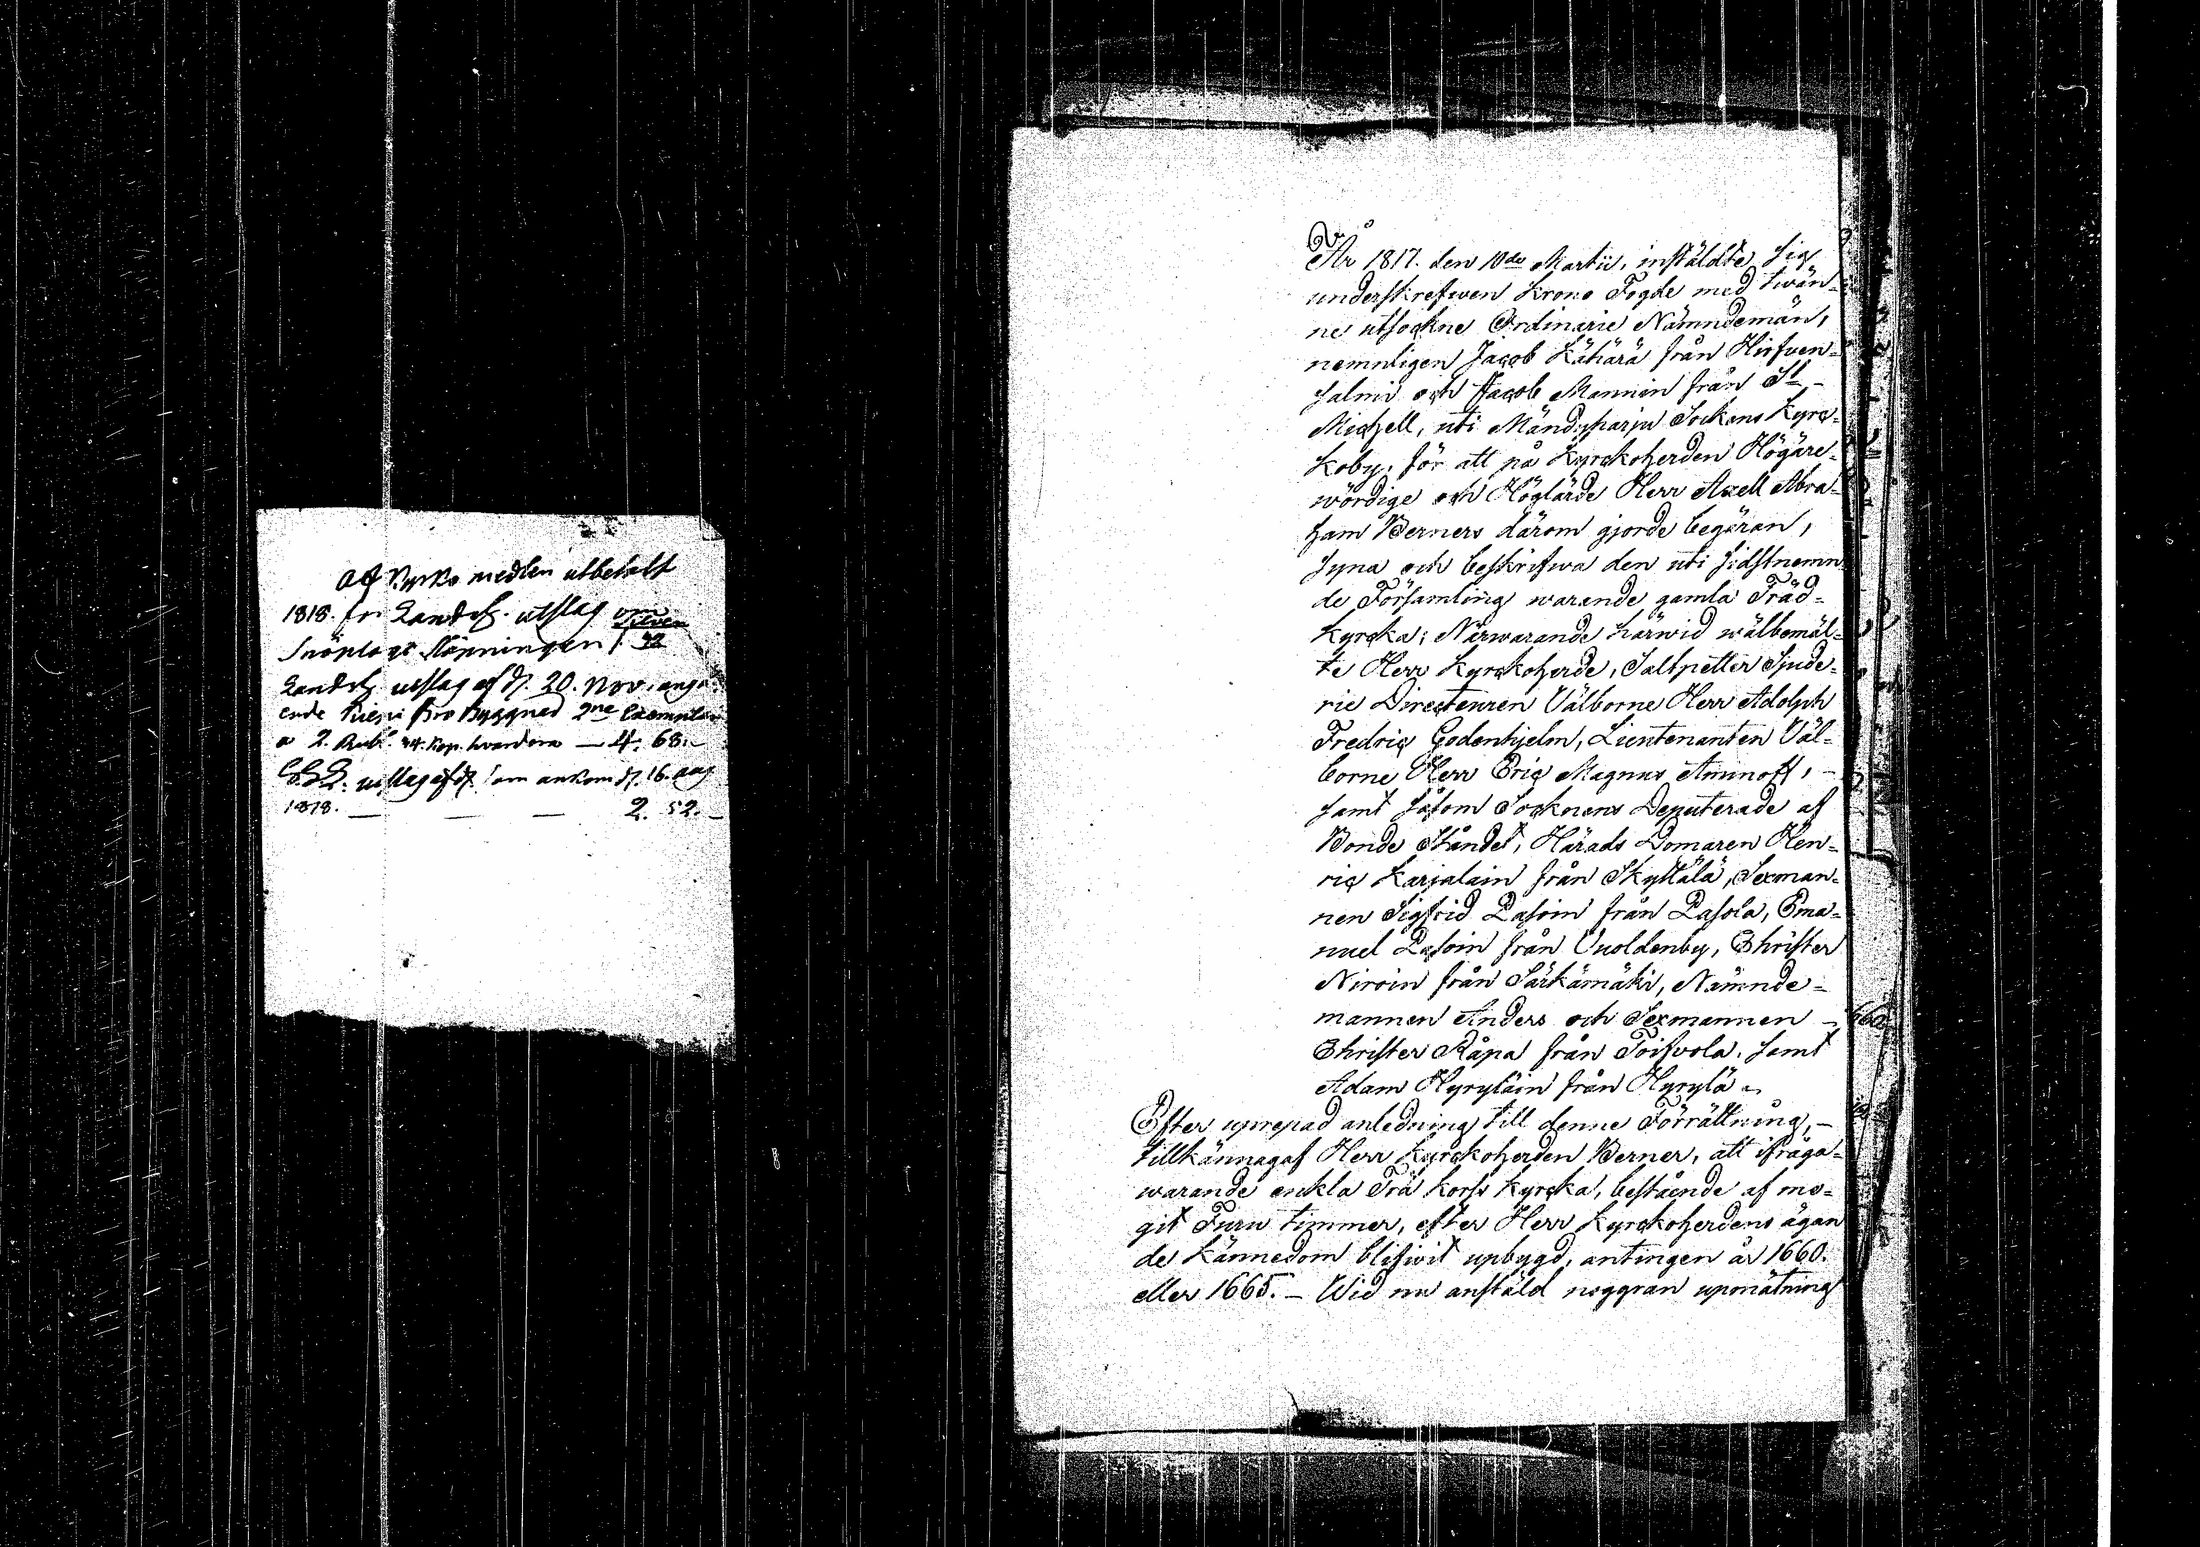 Af Kyrko medlen utbetalt
1818. för Landsh. utslag om
Snöplogs Köpningen 1. 32
Landsh. utslag af d. 20. Nov. angå
ende bro byggnad 2ne Exemplar
a 2. Rub. 34. Kop. hvardera — 4. 68. —
utslag af d. som ankom d. 16. aug
1818. — — — 2. 52. —
År 1817. den 10de Martii, instäldte sig
underskrefwen Krono Fogde med twän-
ne utsockne Ordinarie Nämndemän,
nemnligen Jacob Kähärä från Hirfven-
salmi och Jacob Mannin från St. -
Michell, uti Mändyharju Sockens Kyrc-
koby, för att på Kyrckoherden Högäre-
wördige och Höglärde Herr Axell Abra-
ham Berners därom gjorde begäran,
syna och beskrifwa den uti sidstnemn
de Församling warande gamla Träd-
kyrcka; Närwarande härwid wälbemäl-
te Herr Kyrckoherde, Saltpetter Sjude-
rie Directeuren Välborne Herr Adolph
Fredric Godenhjelm, Lieutenanten Väl-
borne Herr Eric Magnus Aminoff, -
samt såsom Socknens Deputerade af
Bonde Ståndet, Härads Domaren Hen-
ric Karjalain från Skyttälä, Sexman-
nen Sigfrid Pasoin från Pasola, Ema-
nuel Pasoin från Vuoldenby, Christer
Niroin från Särkämäki, Nämnde-
mannen Anders och Sexmannen -
Christer Råpa från Toifvola, samt
Adam Hyryläin från Hyrylä.
Efter uprepad anledning till denne Förrättning, -
tillkännagaf Herr Kyrckoherden Berner, att ifråga-
warande enkla Trä Korss Kyrcka, bestående af mo-
git Furu timmer, efter Herr Kyrckoherdens ägan
de kännedom blifwit upbygd, antingen år 1660.
eller 1665. - Wid nu anstäld noggran upmätning